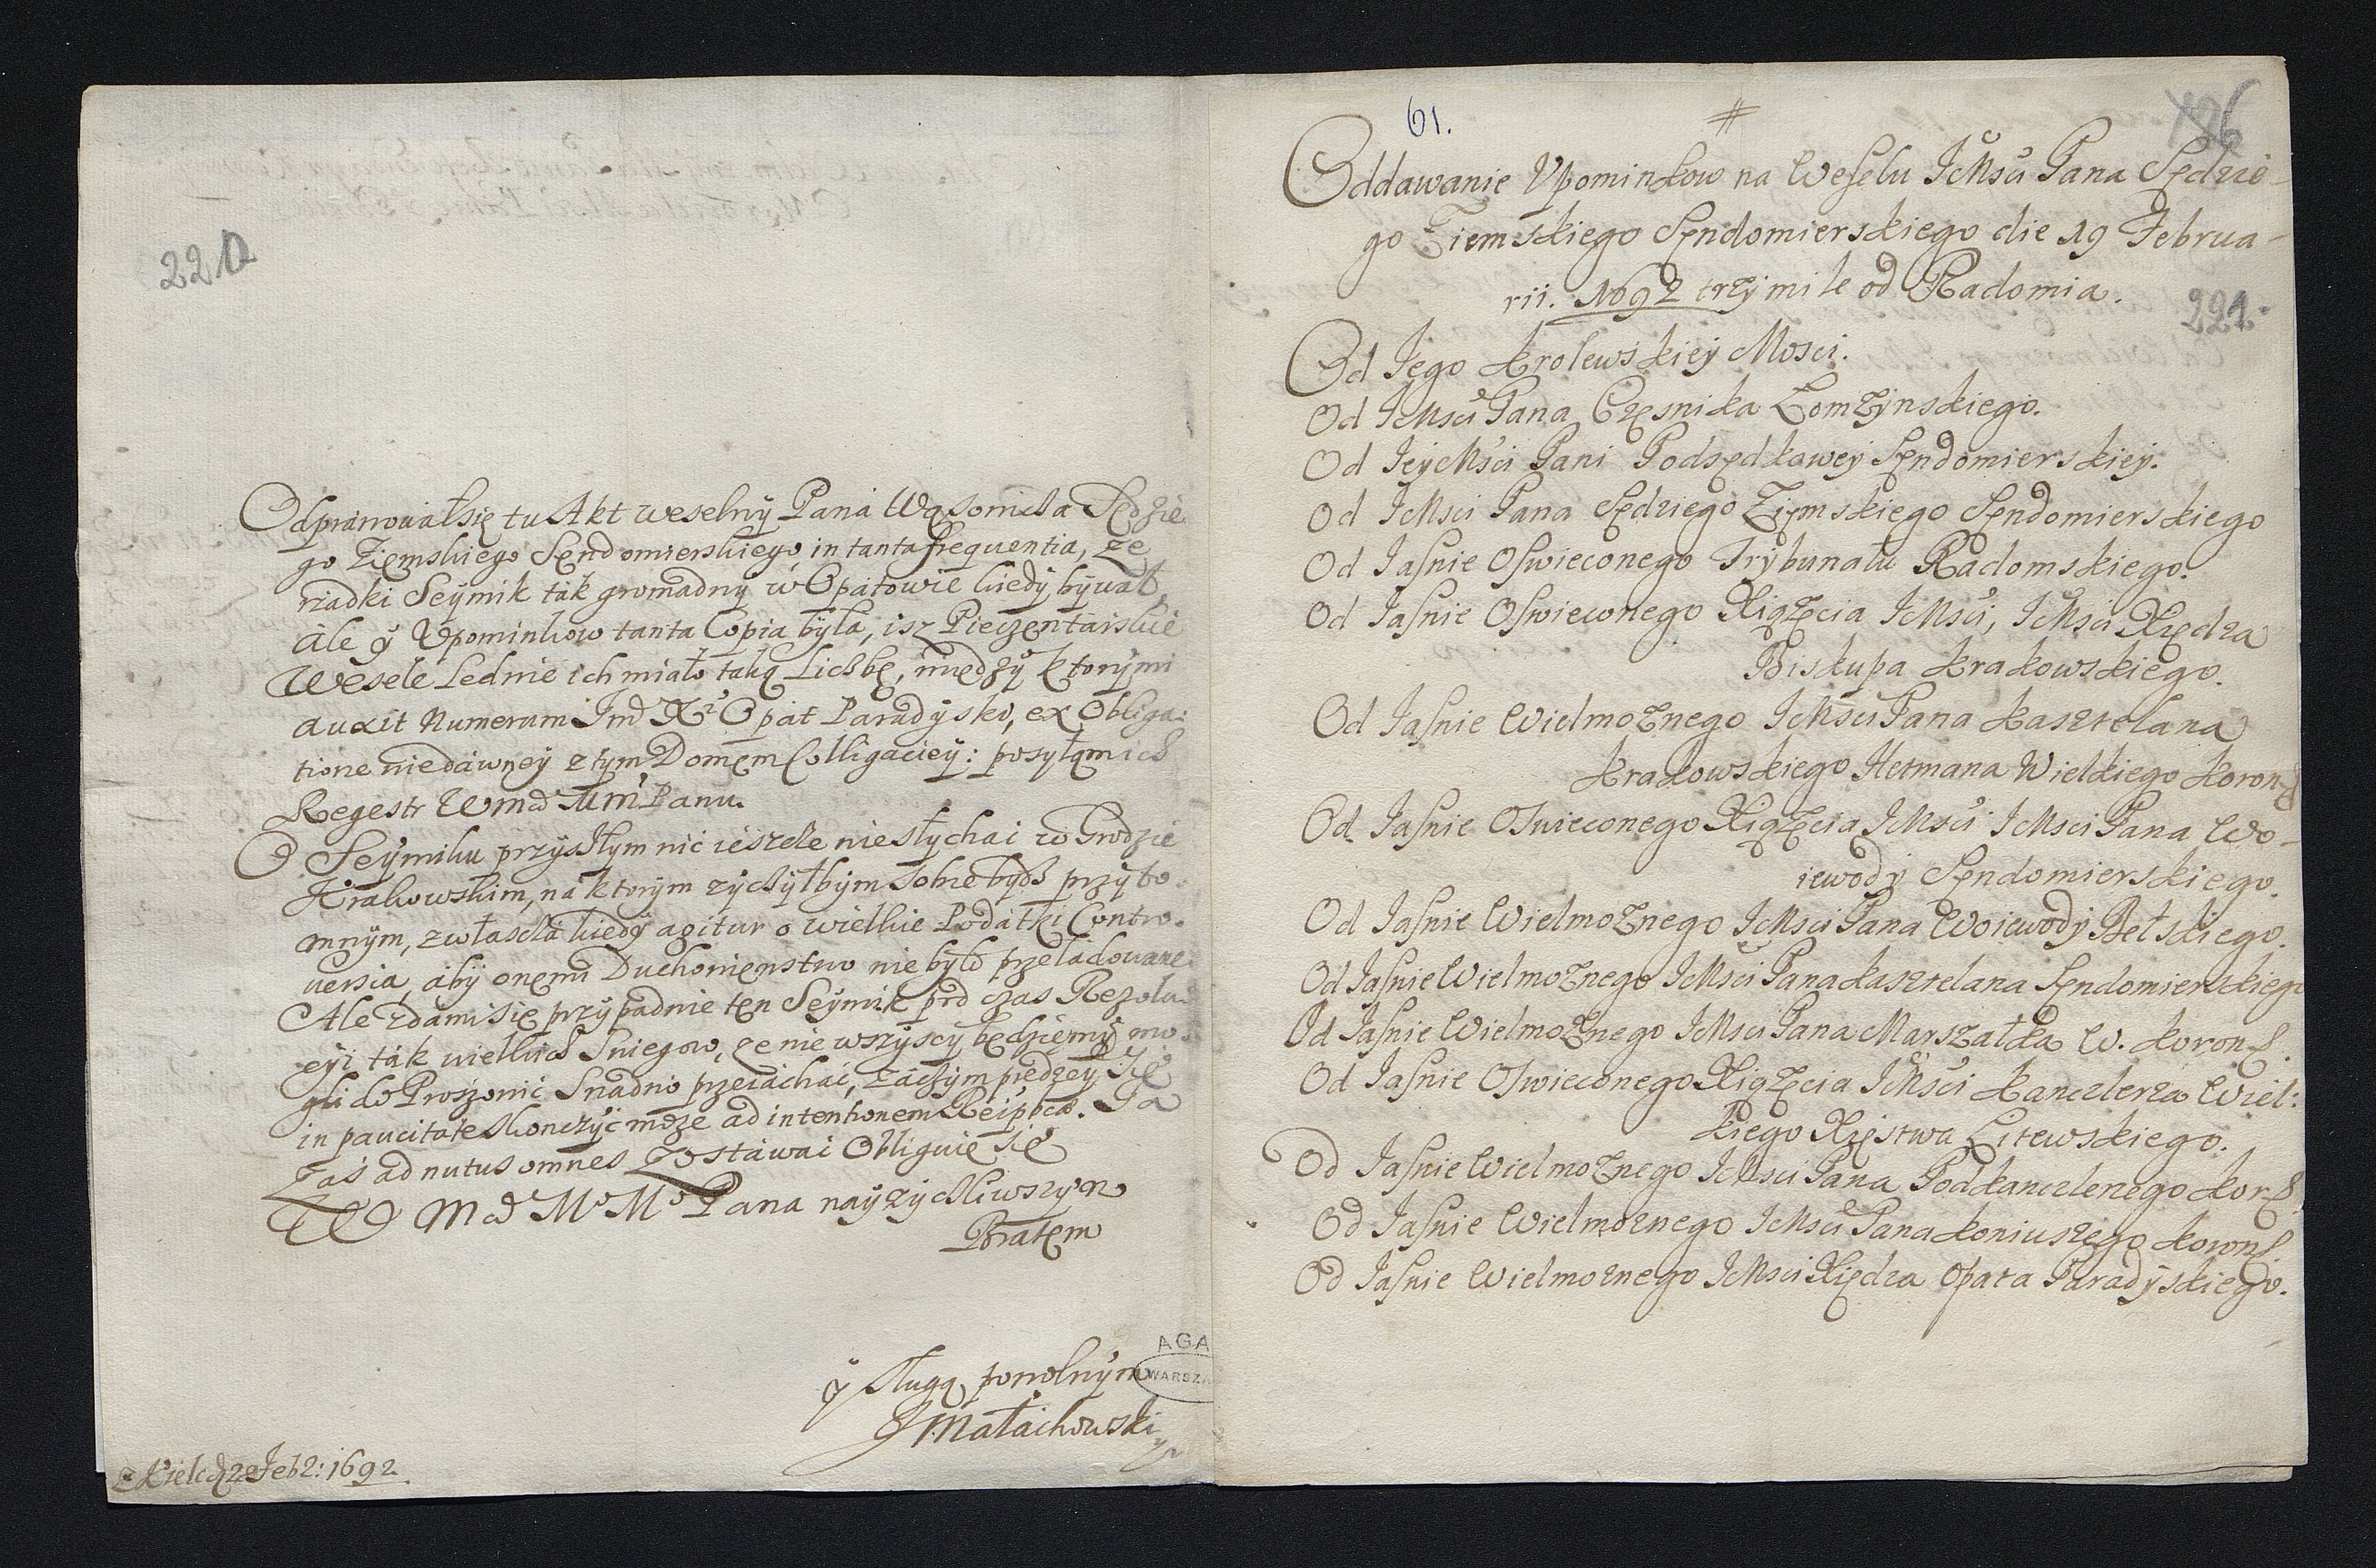 220
Odprawował się tu Akt weselny Pana Wąsowicza Sędzie
go Ziemskiego Sendomierskiego, in tanta frequentia, ze
rzadki Seymik ták gromadny w Opatowie kiedy bywał,
ále y Vpominkow tanta Copia była, isz Pieczentarskie
Wesele Ledwie ich miało taką Liczbę, między ktorymi
auxit Numerum Jmć Xdz Opát Paradyski, ex Obliga:
tione niedáwney z tym Domem Colligaciey: posyłąm ich
Regestr Wmć Mm Panu.
O Seymiku przyszłym nić ieszcze nie słychać w Grodzie
Krakowskim, ná ktorym zyczyłbym sobie bydź przyto-
mnym, zwłaszcza kiedy agitur o wielkie Podátki Contro-
versia, áby onemi Duchowienstwo nie było przeładowane.
Ale zda mi się przypadnie ten Seymik pod czas Rezolu-
cyi ták wielkich Sniegow, ze nie wszyscy będziemy mo-
gli do Proszowic Snadno przeiáchać, záczym prędzey Się
in paucitate skonczyć może ad intentionem Reipbcæ. Ja
zaś ad nutus omnes zostáwać Obliguię się
W Mć M M Pana nayzyczliwszym
Bratem
y sługą powolnym
J Małachowski
z Kielc d 29 Febr: 1692
AGA
WARSZA
61.
#
126
Oddawanie Vpominkow na Weselu JeMsci Pana Sędzie-
go Ziemskiego Sendomierskiego die 19 Februa-
rii. 1692 trzy mile od Radomia.
221
Od Jego Krolewskiey Mosci.
Od JeMsci Pana Czesnika Łomzynskiego.
Od JeyMsci Pani Podsędkowey Sendomierskiey.
Od JeMsci Pana Sędziego Ziemskiego Sendomierskiego
Od Jasnie Oswieconego Trybunału Radomskiego.
Od Jasnie Oswieconego Xiążęcia JeMsci, JeMsci Xiędza
Biskupa Krakowskiego.
Od Jasnie Wielmoznego JeMsci Pana Kasztelana
Krakowskiego Hetmana Wielkiego Koron:
Od Jasnie Oswieconego Xiążęcia JeMsci JeMsci Pana Wo-
iewody Sendomierskiego.
Od Jasnie Wielmoznego JeMsci Pana Woiewody Bełskiego.
Od Jasnie Wielmoznego JeMsci Pana Kasztelana Sendomierskiego
Od Jasnie Wielmoznego JeMsci Pana Marszałka W. Koron:
Od Jasnie Oswieconego Xiążęcia JeMsci Kanclerza Wiel:
kiego Xięstwa Litewskiego.
Od Jasnie Wielmoznego JeMsci Pana Podkanclerzego Kor:
Od Jasnie Wielmoznego JeMsci Pana Koniuszego Koron:
Od Jasnie Wielmoznego JeMsci Xiędza Opata Paradyskiego.